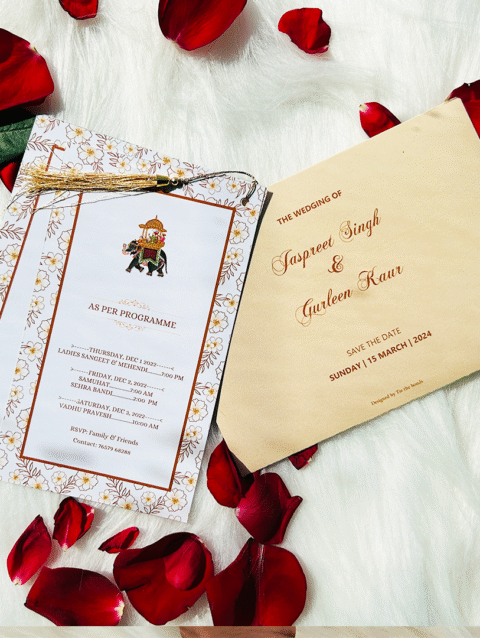 AS PER PROGRAMME
THURSDAY, DEC 1 2022
LADIES SANGEET & MEHENDI........7:00 PM
FRIDAY, DEC 2, 2022
SAMUHAT..........7:00 AM
SEHRA BANDI..........2:00 PM
SATURDAY, DEC 3, 2022
VADHU PRAVESH..........10:00 AM
RSVP: Family & Friends
Contact: 76579 68288
THE WEDGING OF
Jaspreet Singh
&
Gurleen Kaur
SAVE THE DATE
SUNDAY | 15 MARCH | 2024
Designed by Tie the bonds